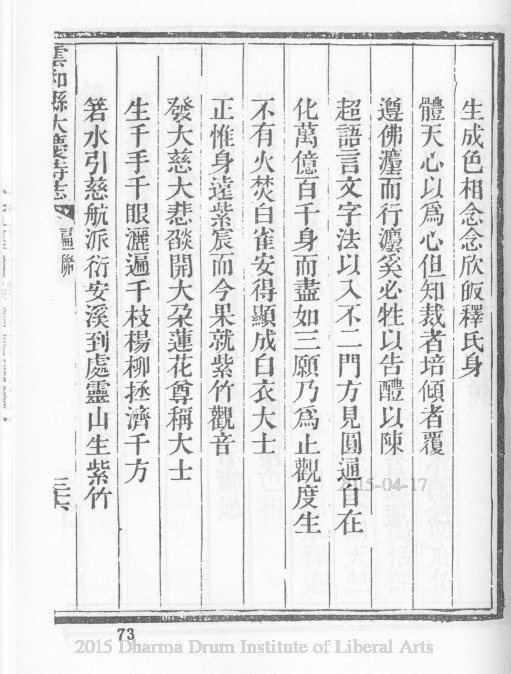 生成色相念念欣皈釋氏身
體天心以爲心但知裁者培傾者覆
遵佛瀍而行瀍奚必牲以告醴以陳
超語言文字法以入不二門方見圓通自在
化萬億百千身而盡如三願乃爲止觀度生
不有火焚白雀安得顯成白衣大士
正惟身遠紫宸而今果就紫竹觀音
發大慈大悲燄開大朶蓮花尊稱大士
生千手千眼灑遍千枝楊柳拯濟千方
箬水引慈航派衍安溪到處靈山生紫竹
雲和縣大慶寺志
匾聯
三六
2015-04-17
73
2015 Dharma Drum Institute of Liberal Arts